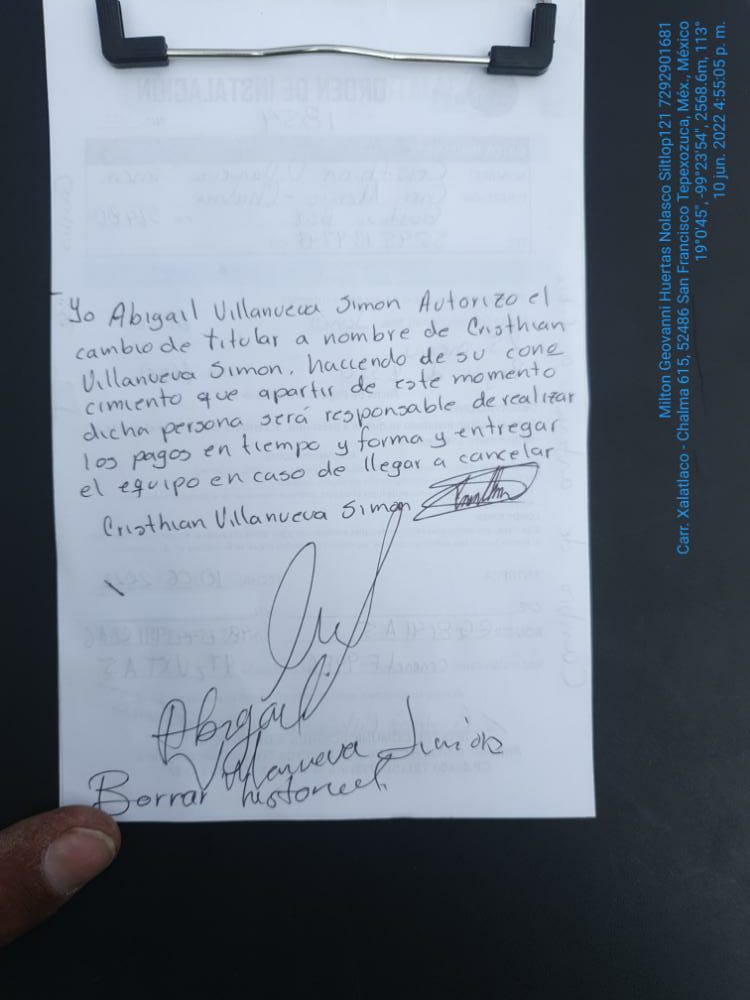 Yo Abigail Villanueva Simon Autorizo el
cambio de titular a nombre de Cristhian
Villanueva Simon. haciendo de su cono
cimiento que apartir de este momento
dicha persona será responsable de realizar
los pagos en tiempo y forma y entregar
el equipo en caso de llegar a cancelar
Cristhian Villanueva Simon
Abigail
Villanueva Simón
Borrar
Milton Geovanni Huertas Nolasco Sitlop121 7292901681
Carr. Xalatlaco - Chalma 615, 52486 San Francisco Tepexozuca, Méx., México
19°0'45", -99°23'54", 2568.6m, 113°
10 jun. 2022 4:55:05 p. m.